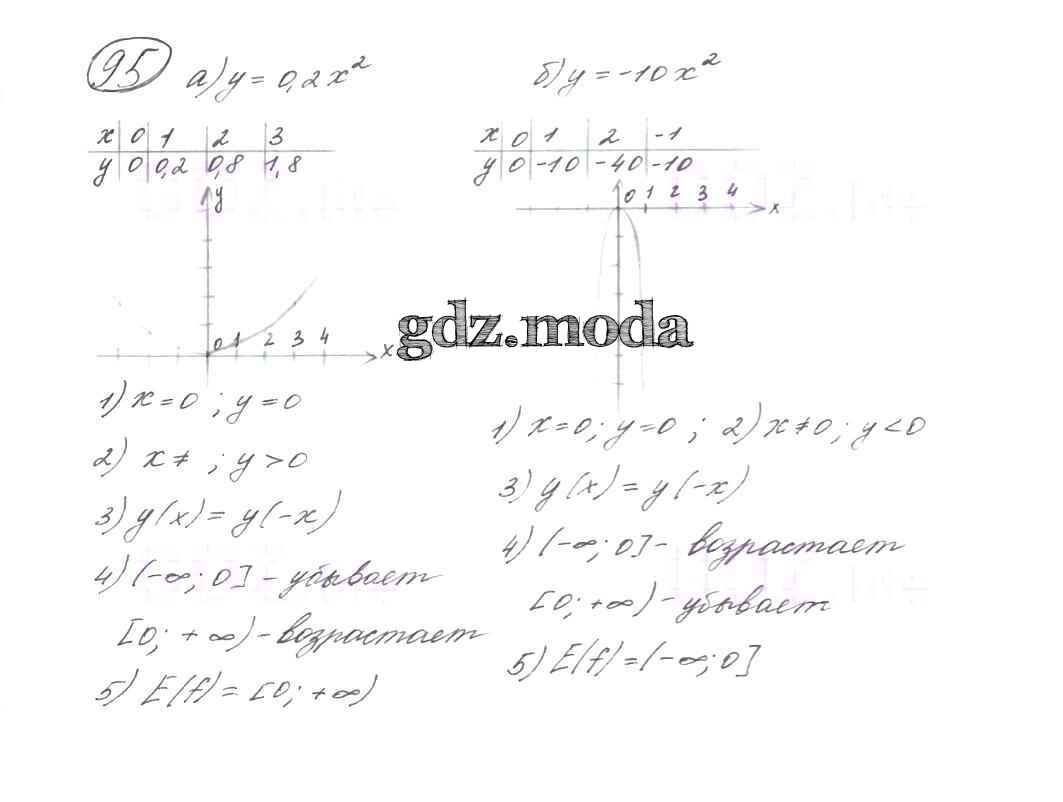 95 а) y = 0,2x²
x 0 1 2 3
y 0 0,2 0,8 1,8
y
0 1 2 3 4 x
1) x = 0 ; y = 0
2) x ≠ ; y > 0
3) y(x) = y(-x)
4) (-∞; 0] - убывает
[0; +∞) - возрастает
5) E(f) = [0; +∞)
б) y = -10x²
x 0 1 2 -1
y 0 -10 -40 -10
0 1 2 3 4 x
1) x = 0; y = 0 ; 2) x ≠ 0; y < 0
3) y(x) = y(-x)
4) (-∞; 0] - возрастает
[0; +∞) - убывает
5) E(f) = (-∞; 0]
gdz.moda